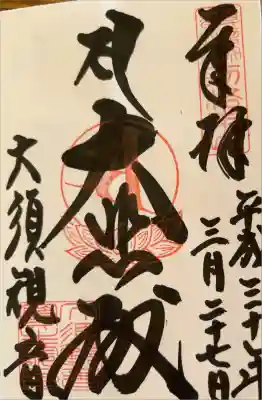 奉拝
平成三十一年
三月二十七日
大悲殿
大須観音